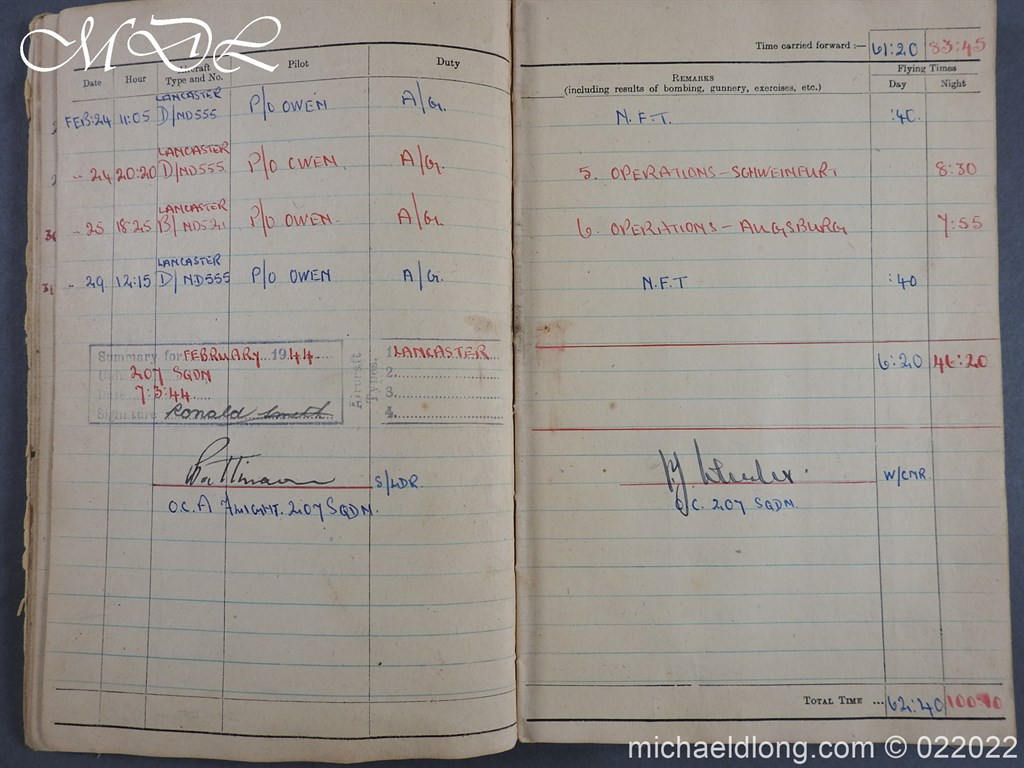 MDL
Time carried forward :— 61:20 83:45
Date Hour Aircraft Type and No. Pilot Duty
REMARKS
(including results of bombing, gunnery, exercises, etc.)
Flying Times
Day Night
FEB:24 11:05 LANCASTER D/ND555 P/O OWEN A/G. N.F.T. :40.
" 24 20:20 LANCASTER D/ND555 P/O OWEN A/G. 5. OPERATIONS - SCHWEINFURT 8:30
" 25 18:25 LANCASTER B/ND521 P/O OWEN A/G. 6. OPERATIONS - AUGSBURG 7:55
31 " 29. 12:15 LANCASTER D/ND555 P/O OWEN A/G. N.F.T :40
Summary for FEBRUARY 1944
207 SQDN
Date 7:3:44
Signature Ronald Smith
Aircraft Types.
1 LANCASTER
2.
3.
4.
6:20 46:20
S/LDR.
O.C. A FLIGHT. 207 SQDN.
W/CMR.
O.C. 207 SQDN.
TOTAL TIME ... 62:40 100:10
michaeldlong.com © 022022